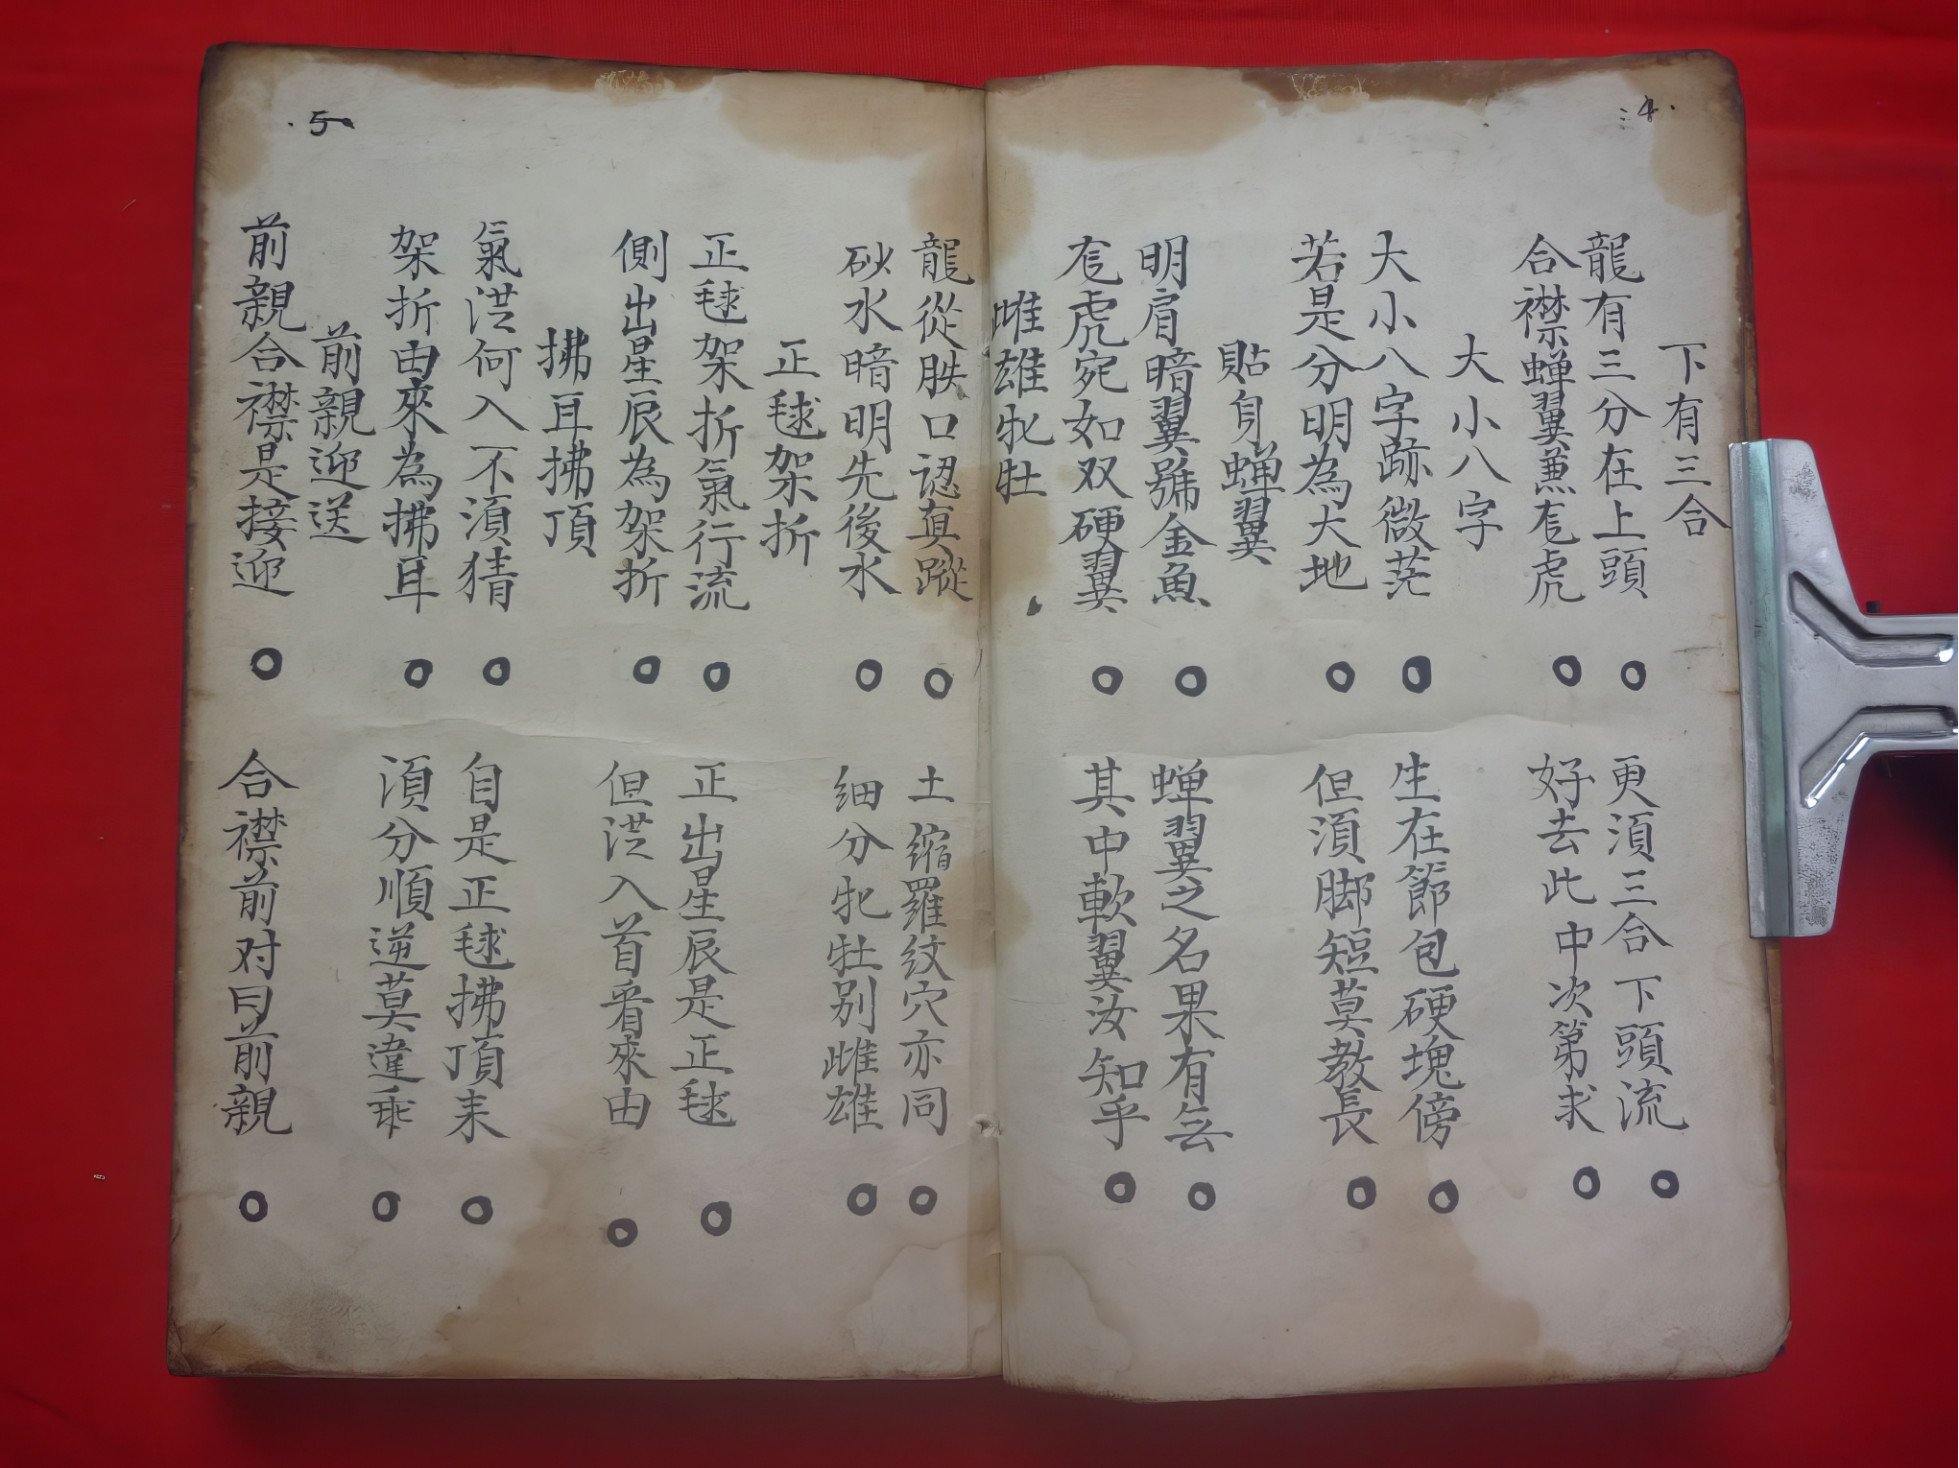 4
下有三合
龍有三分在上頭 更湏三合下頭流
合襟蝉翼蒹虎 好去此中次第求
大小八字
大小八字跡微茫 生在節包硬塊傍
若是分明為大地 但湏脚短莫教長
貼身蝉翼
明肩暗翼號金魚 蝉翼之名果有無
虎宛如双硬翼 其中軟翼汝知乎
雌雄牝牡
龍從口認真蹤 土縮羅紋穴亦同
砂水暗明先後水 细分牝牡别雌雄
正毬架折
正毬架折氣行流 正出星辰是正毬
側出星辰為架折 但洪入首看來由
拂耳拂頂
氣洪何入不湏猜 自是正毬拂頂来
架折由來為拂耳 湏分順逆莫違乖
前親迎送
前親合襟是接迎 合襟前对曰前親
5